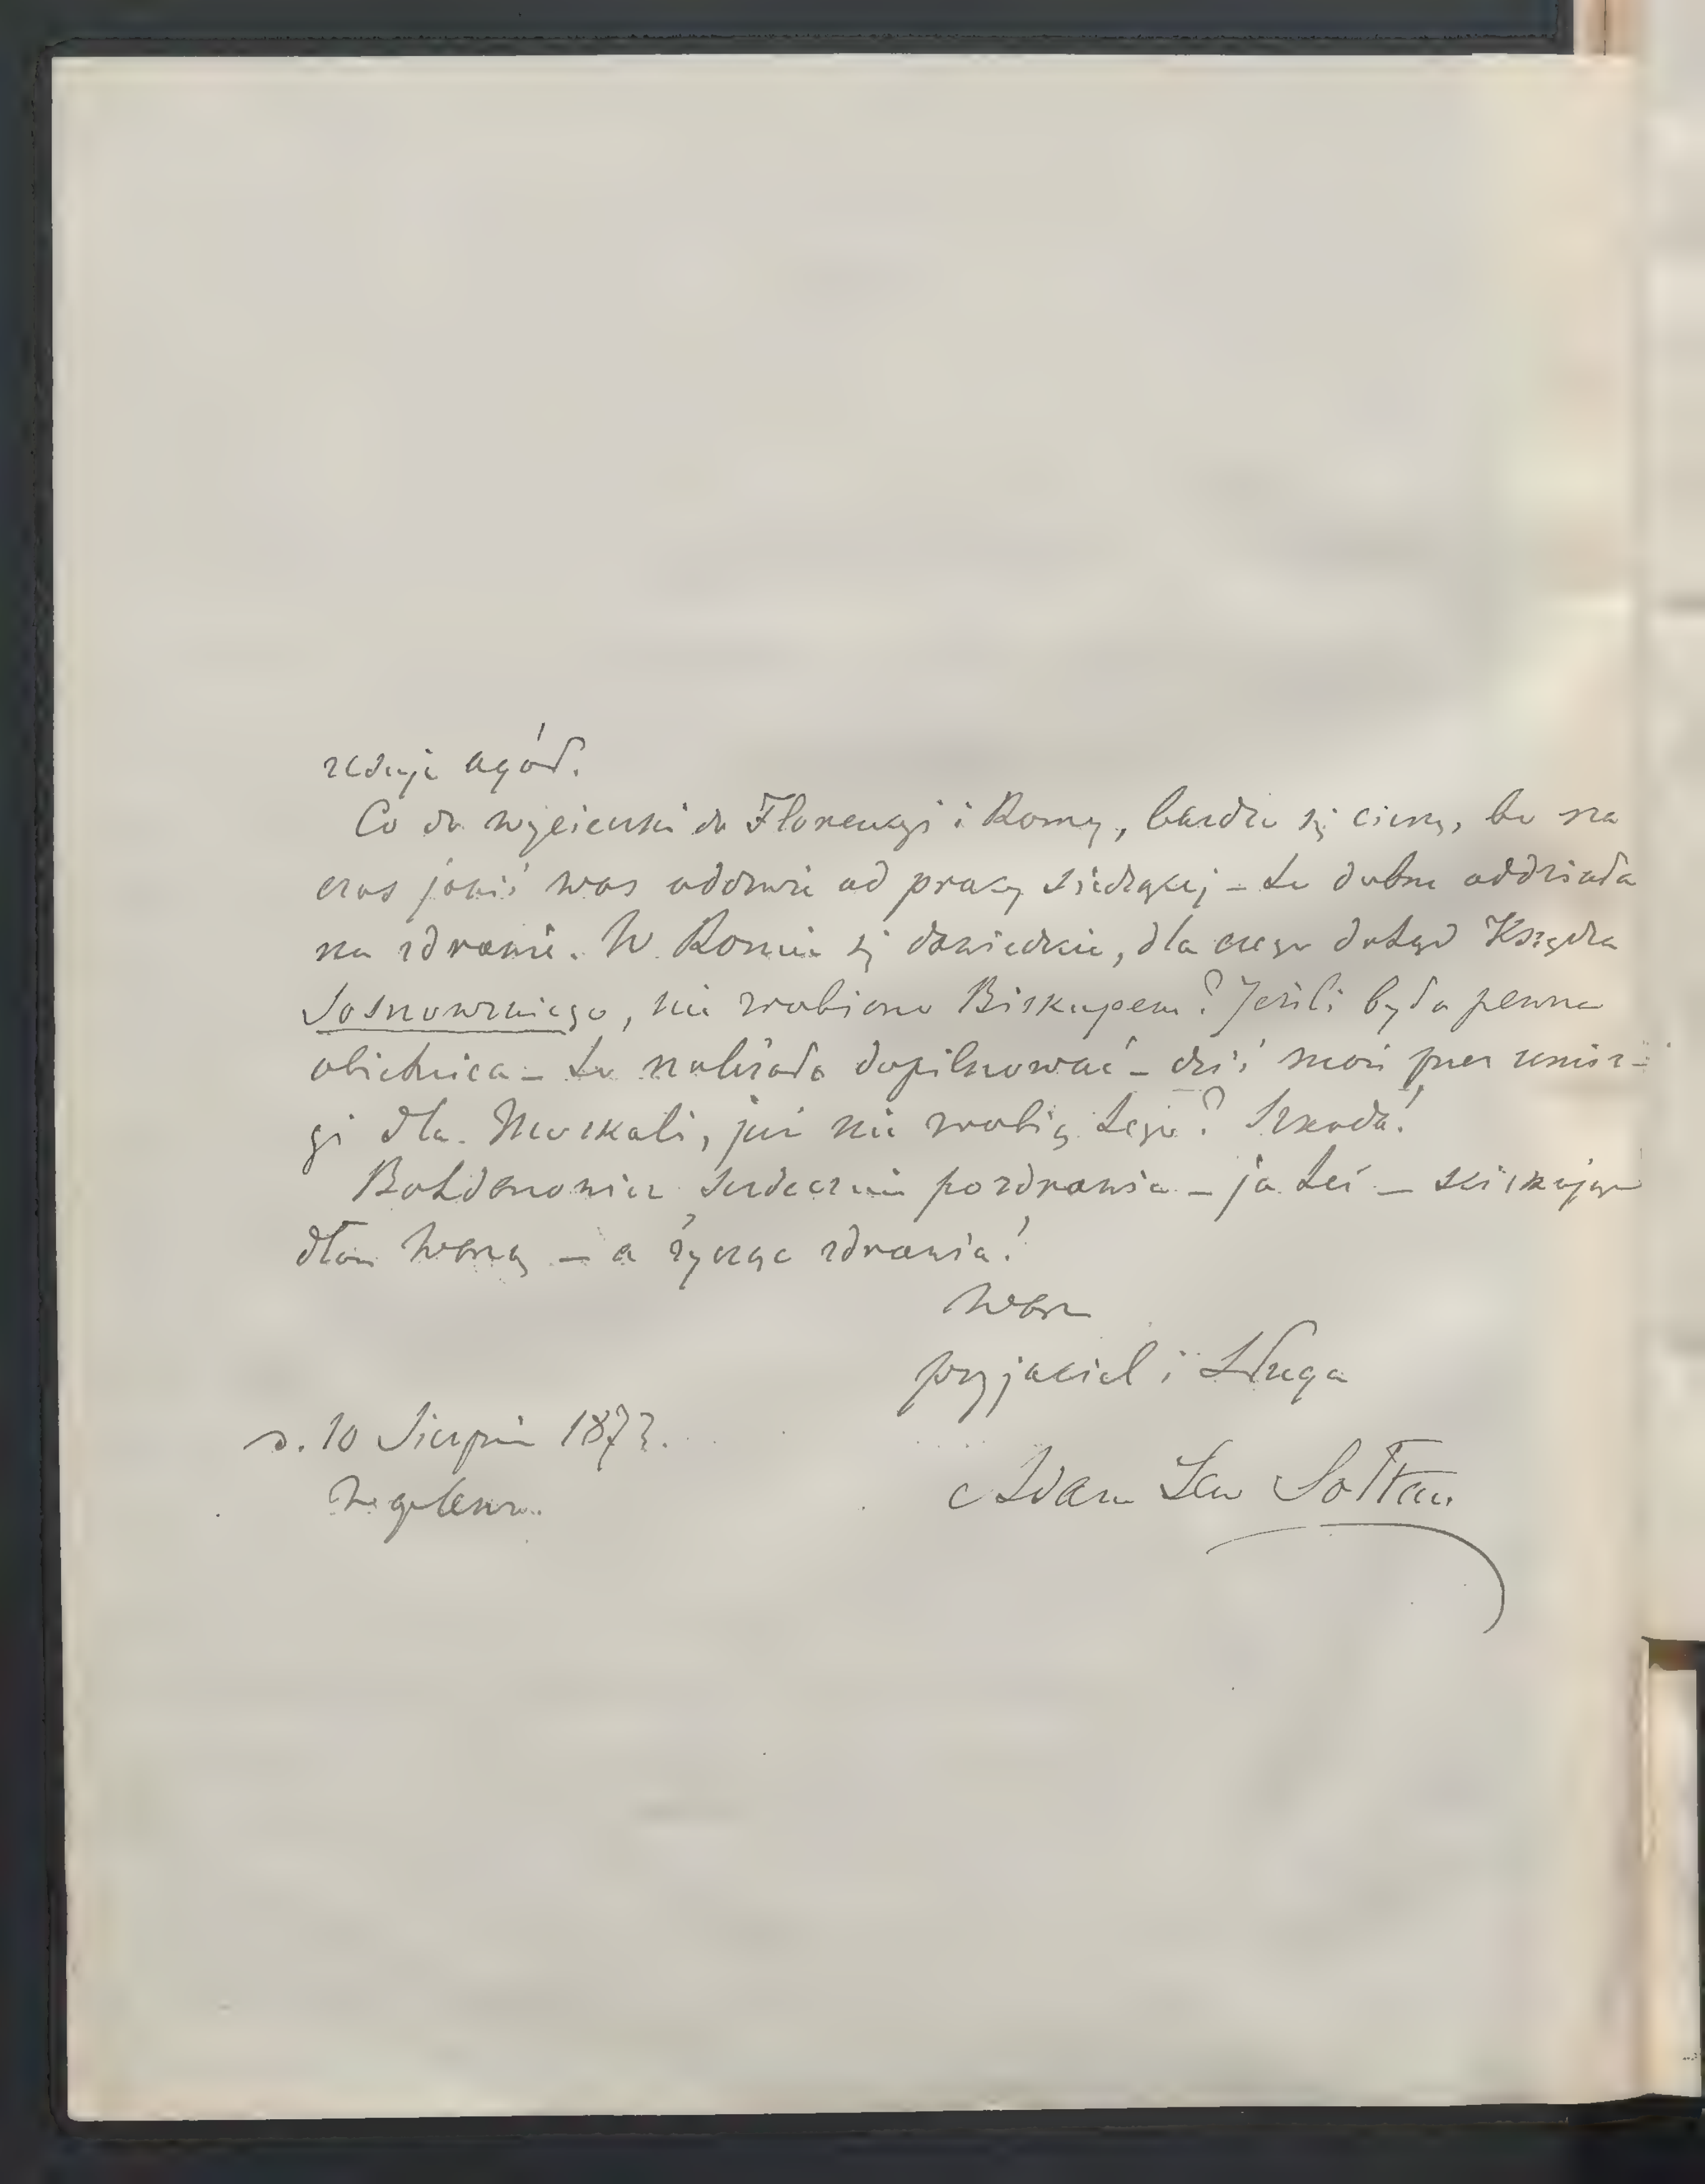 reduje ogół.
Co do wycieczki do Florencyi i Romy, bardzo się cieszę, bo na
czas jakiś was oderwie od pracy siedzącej – to dobrze oddziała
na zdrowie. W Romie się dowiedzcie, dla czego dotąd Księdza
Sosnowskiego, nie zrobiono Biskupem? Jeśli była pewna
obietnica – to należało dopilnować – dziś może przez umiz-
gi dla Moskali, już nie zrobią tego? Szkoda!
Bohdanowicz serdecznie pozdrawia – ja też – ściskając
dłoń Waszą – a życząc zdrowia!
Wasz
przyjaciel i sługa
d. 10 Sierpnia 1873.
Adam Lew Sołtan